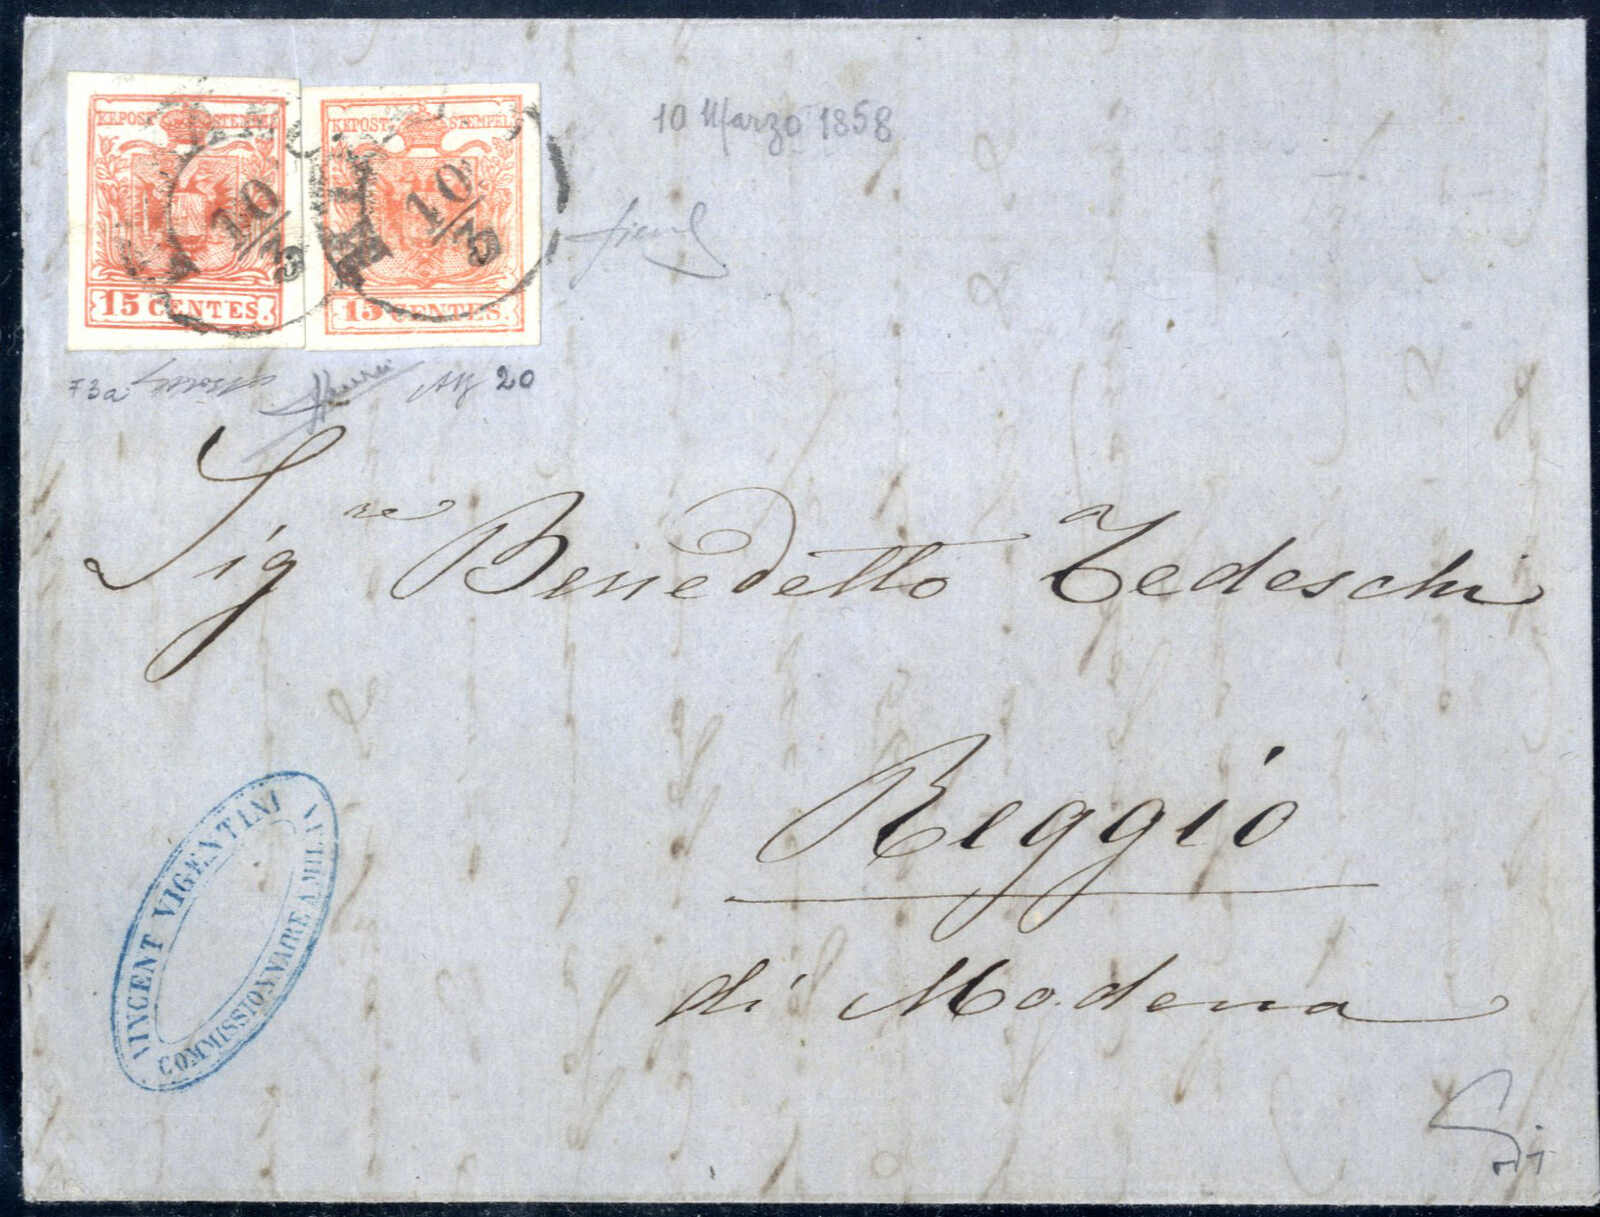 KEPOST STEMPEL
15 CENTES.
10/3
KKPOST STEMPEL
15 CENTES.
10/3
10 Marzo 1858
73a 20
Sig.re Benedetto Tedeschi
Reggio
di Modena
VINCENT VIGENTINI
COMMISSIONNAIRE A MILAN